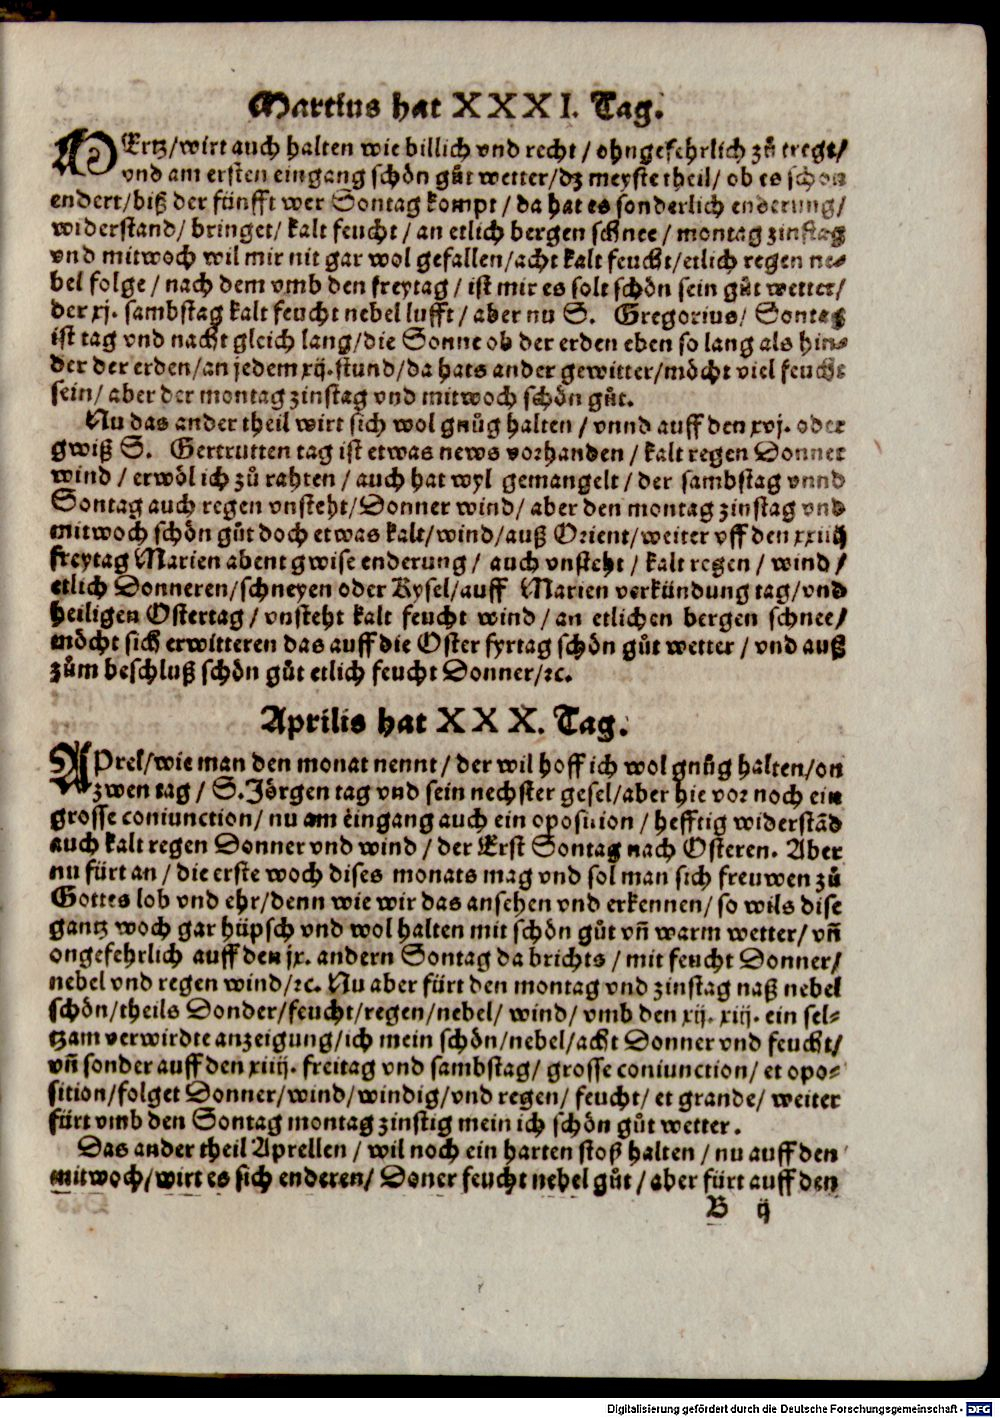 Martius hat XXXI. Tag.
MErtz/wirt auch halten wie billich vnd recht / ohngefehrlich zů tregt/
vnd am ersten eingang schön gůt wetter/dz meyste theil/ ob es schon
endert/biß der fünfft wer Sontag kompt / da hat es sonderlich enderung/
widerstand/ bringet/ kalt feucht / an etlich bergen schnee / montag zinstag
vnd mitwoch wil mir nit gar wol gefallen/acht kalt feucht/etlich regen ne⸗
bel folge / nach dem vmb den freytag / ist mir es solt schön sein gůt wetter/
der xj. sambstag kalt feucht nebel lufft / aber nu S. Gregorius/ Sontag
ist tag vnd nacht gleich lang/die Sonne ob der erden eben so lang als hin⸗
der der erden/an jedem xij.stund/da hats ander gewitter/möcht viel feucht
sein/ aber der montag zinstag vnd mitwoch schön gůt.
Nu das ander theil wirt sich wol gnůg halten / vnnd auff den xvj. oder
gwiß S. Gertrutten tag ist etwas news vorhanden / kalt regen Donner
wind / erwöl ich zů rahten / auch hat wyl gemangelt / der sambstag vnnd
Sontag auch regen vnsteht/Donner wind/ aber den montag zinstag vnd
mitwoch schön gůt doch etwas kalt/wind/auß Orient/weiter vff den xxiiij
freytag Marien abent gwise enderung / auch vnsteht / kalt regen / wind /
etlich Donneren/schneyen oder Rysel/auff Marien verkündung tag/vnd
heiligen Ostertag / vnsteht kalt feucht wind / an etlichen bergen schnee/
möcht sich erwitteren das auff die Oster fyrtag schön gůt wetter / vnd auß
zům beschluß schön gůt etlich feucht Donner/ꝛc.
Aprilis hat XXX. Tag.
APrel/wie man den monat nennt / der wil hoff ich wol gnůg halten/on
zwen tag / S.Jörgen tag vnd sein nechster gesel/aber hie vor noch ein
grosse coniunction/ nu am eingang auch ein oposition / hefftig widerstãd
auch kalt regen Donner vnd wind / der Erst Sontag nach Osteren. Aber
nu fürt an / die erste woch dises monats mag vnd sol man sich freuwen zů
Gottes lob vnd ehr/denn wie wir das ansehen vnd erkennen/ so wils dise
gantz woch gar hüpsch vnd wol halten mit schön gůt vñ warm wetter/ vñ
ongefehrlich auff den jx. andern Sontag da brichts / mit feucht Donner/
nebel vnd regen wind/ꝛc. Nu aber fürt den montag vnd zinstag naß nebel
schön/theils Donder/feucht/regen/nebel/ wind/ vmb den xij. xiij. ein sel⸗
tzam verwirdte anzeigung/ich mein schön/nebel/acht Donner vnd feucht/
vñ sonder auff den xiiij. freitag vnd sambstag/ grosse coniunction/ et opo⸗
sition/folget Donner/wind/windig/vnd regen/ feucht/ et grande/ weiter
fürt vmb den Sontag montag zinstig mein ich schön gůt wetter.
Das ander theil Aprellen / wil noch ein harten stoß halten / nu auff den
mitwoch/wirt es sich enderen/ Doner feucht nebel gůt / aber fürt auff den
B ij
Digitalisierung gefördert durch die Deutsche Forschungsgemeinschaft - DFG